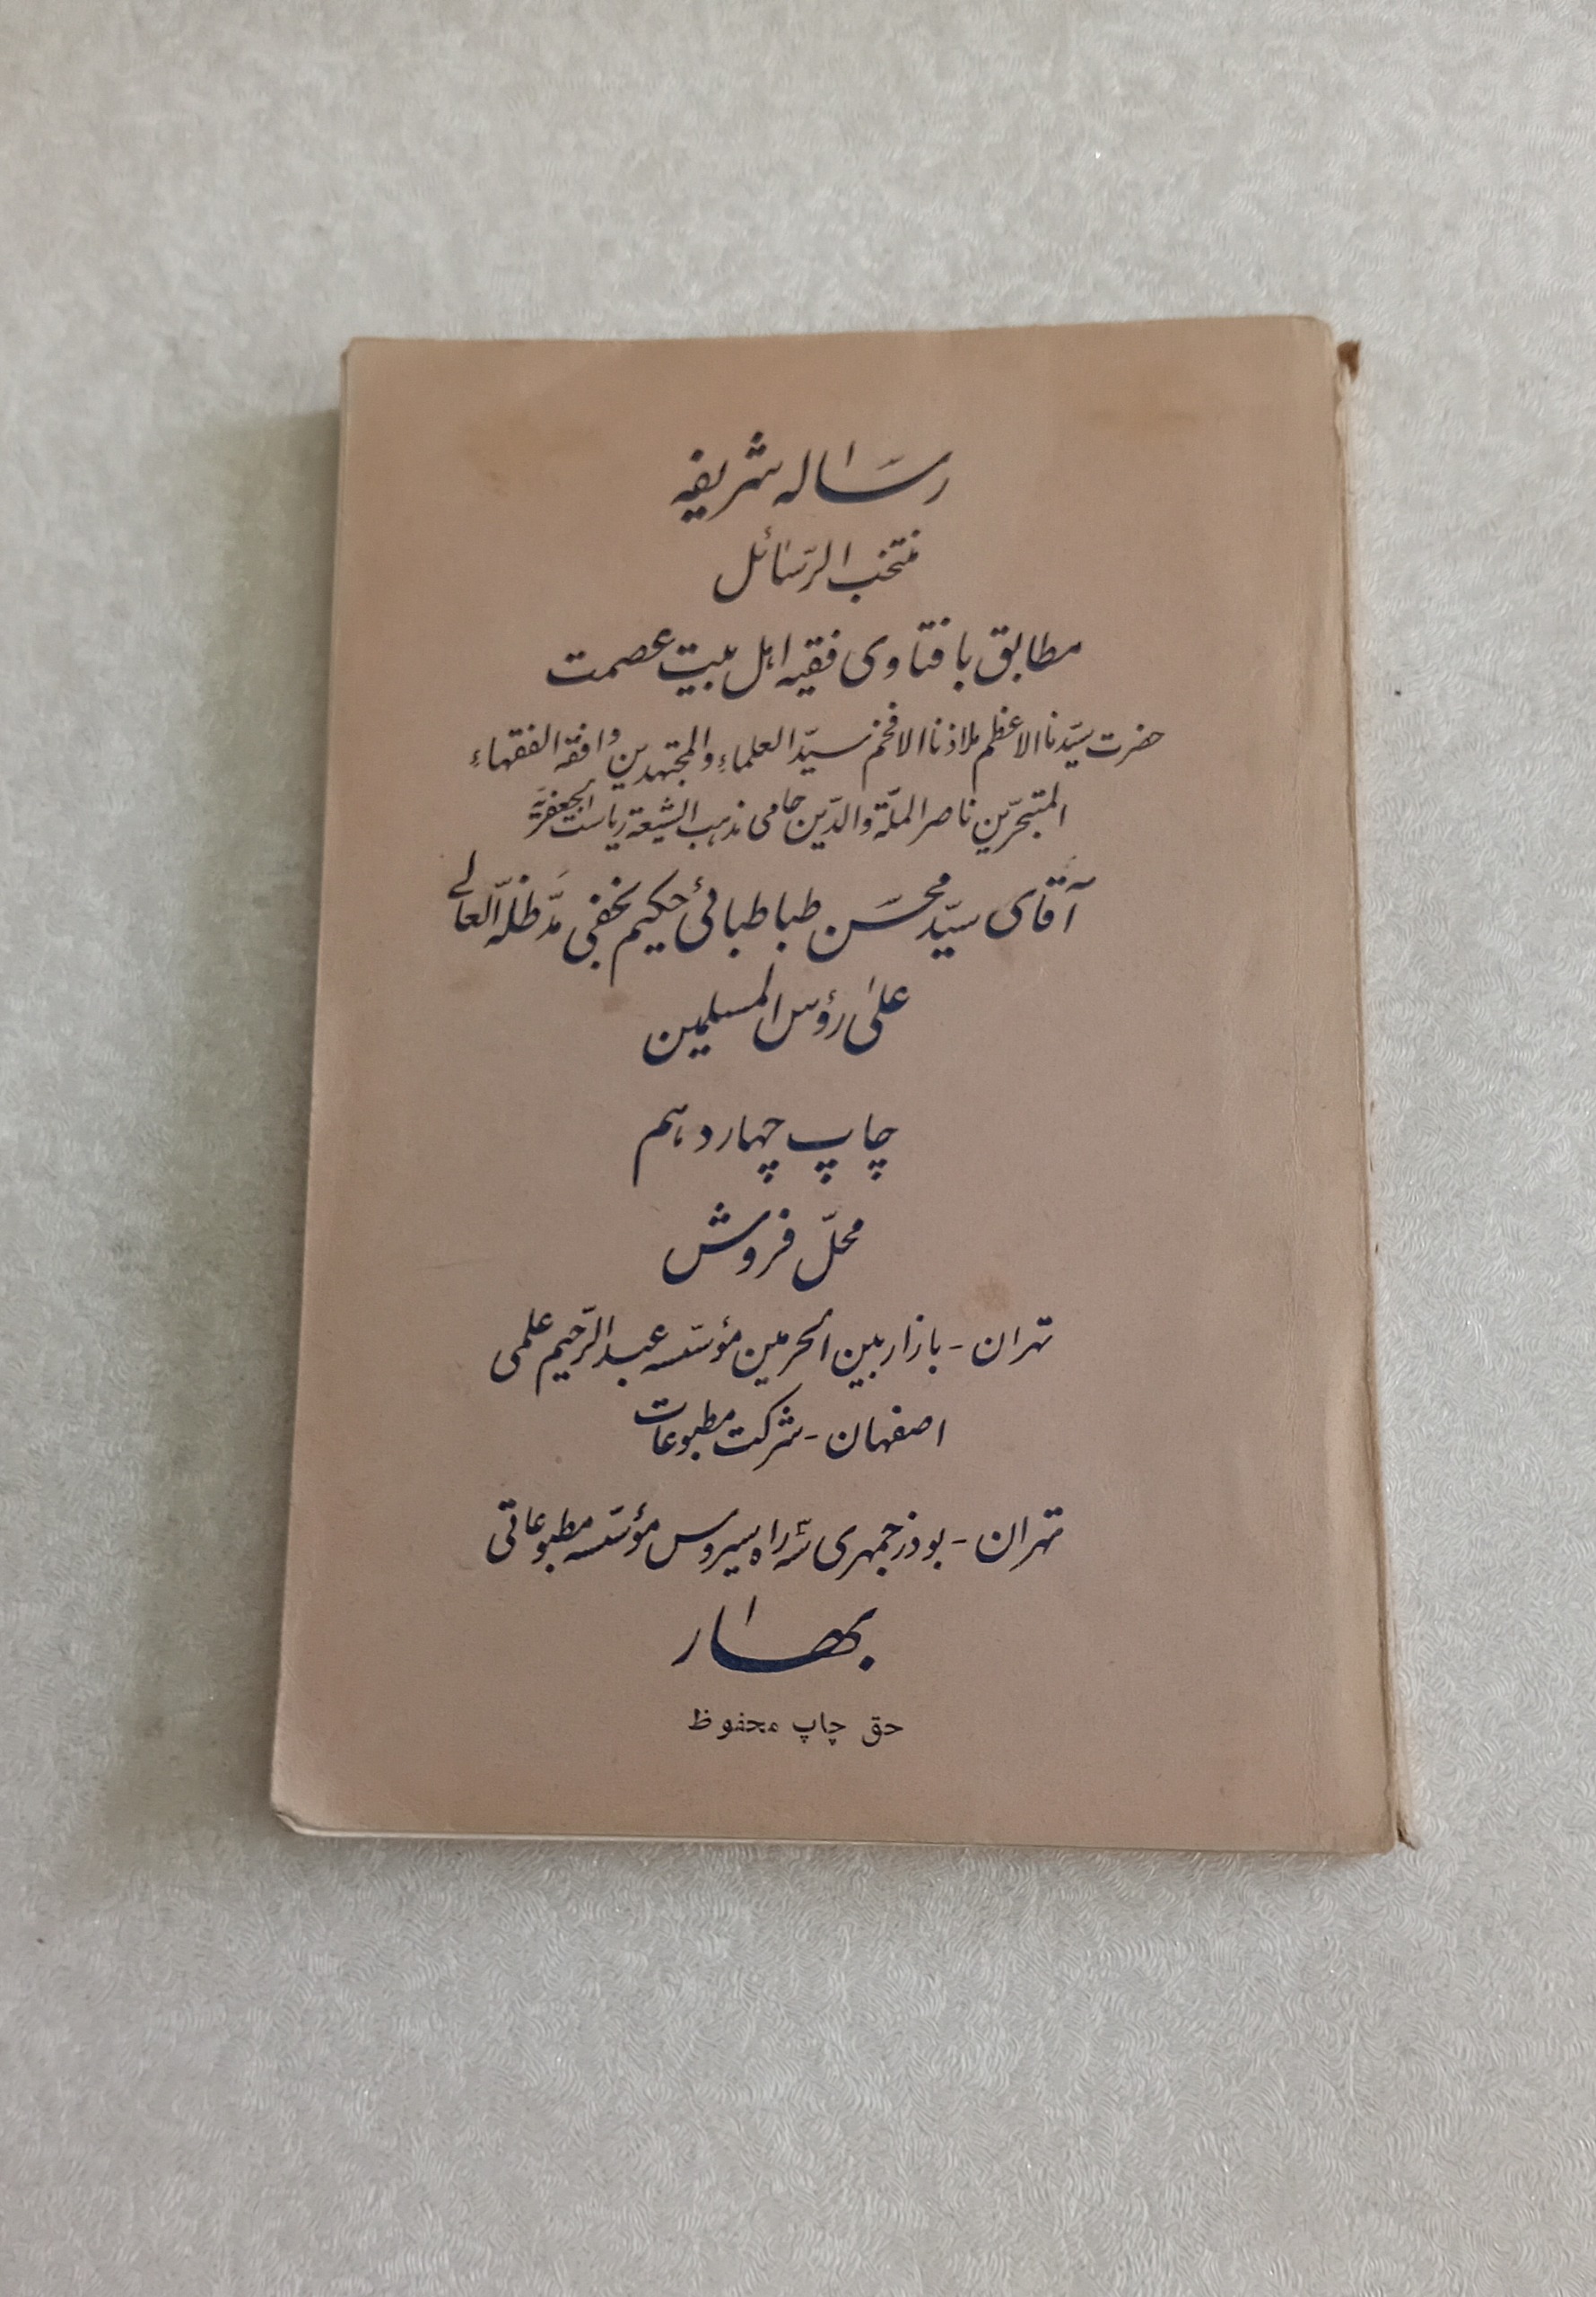 رساله شریفه
منتخب الرّسائل
مطابق با فتاوی فقیه اهل بیت عصمت
حضرت سیّدنا الاعظم ملاذنا الافخم سیّد العلماءِ والمجتهدین وافقه الفقهاءِ
المتبحّرین ناصر الملّة والدّین حامی مذهب الشّیعة ریاست الجعفریّة
آقای سیّد محسَن طباطبائی حکیم نجفی مدَّ ظلّه العالی
علیٰ رؤس المسلمین
چاپ چهاردهم
محلّ فروش
تهران - بازار بین الحرمین مؤسّسه عبدالرّحیم علمی
اصفهان - شرکت مطبوعات
تهران - بوذرجمهری سه راه سیروس مؤسّسه مطبوعاتی
بهار
حق چاپ محفوظ